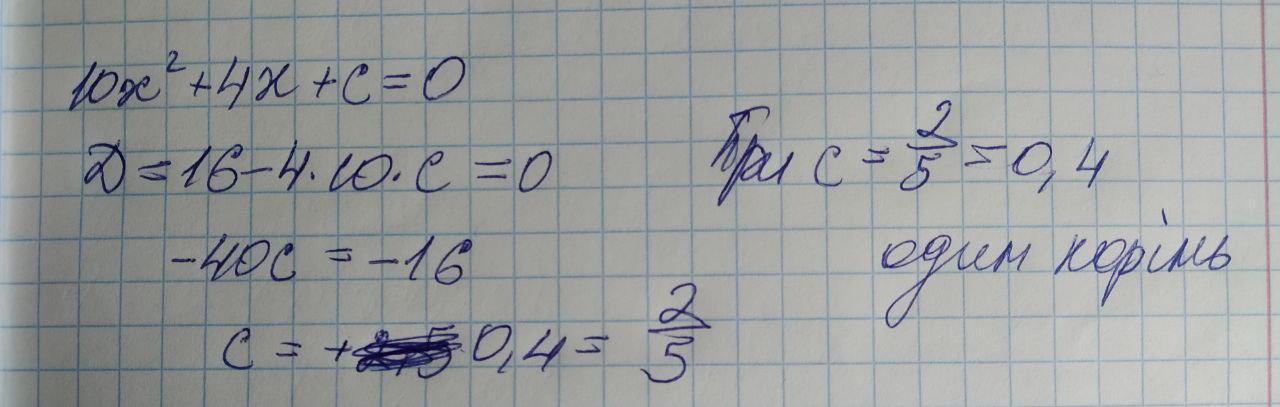 10x² + 4x + c = 0
D = 16 - 4·10·c = 0
-40c = -16
c = + 0,4 = 2/5
При c = 2/5 = 0,4
один корінь